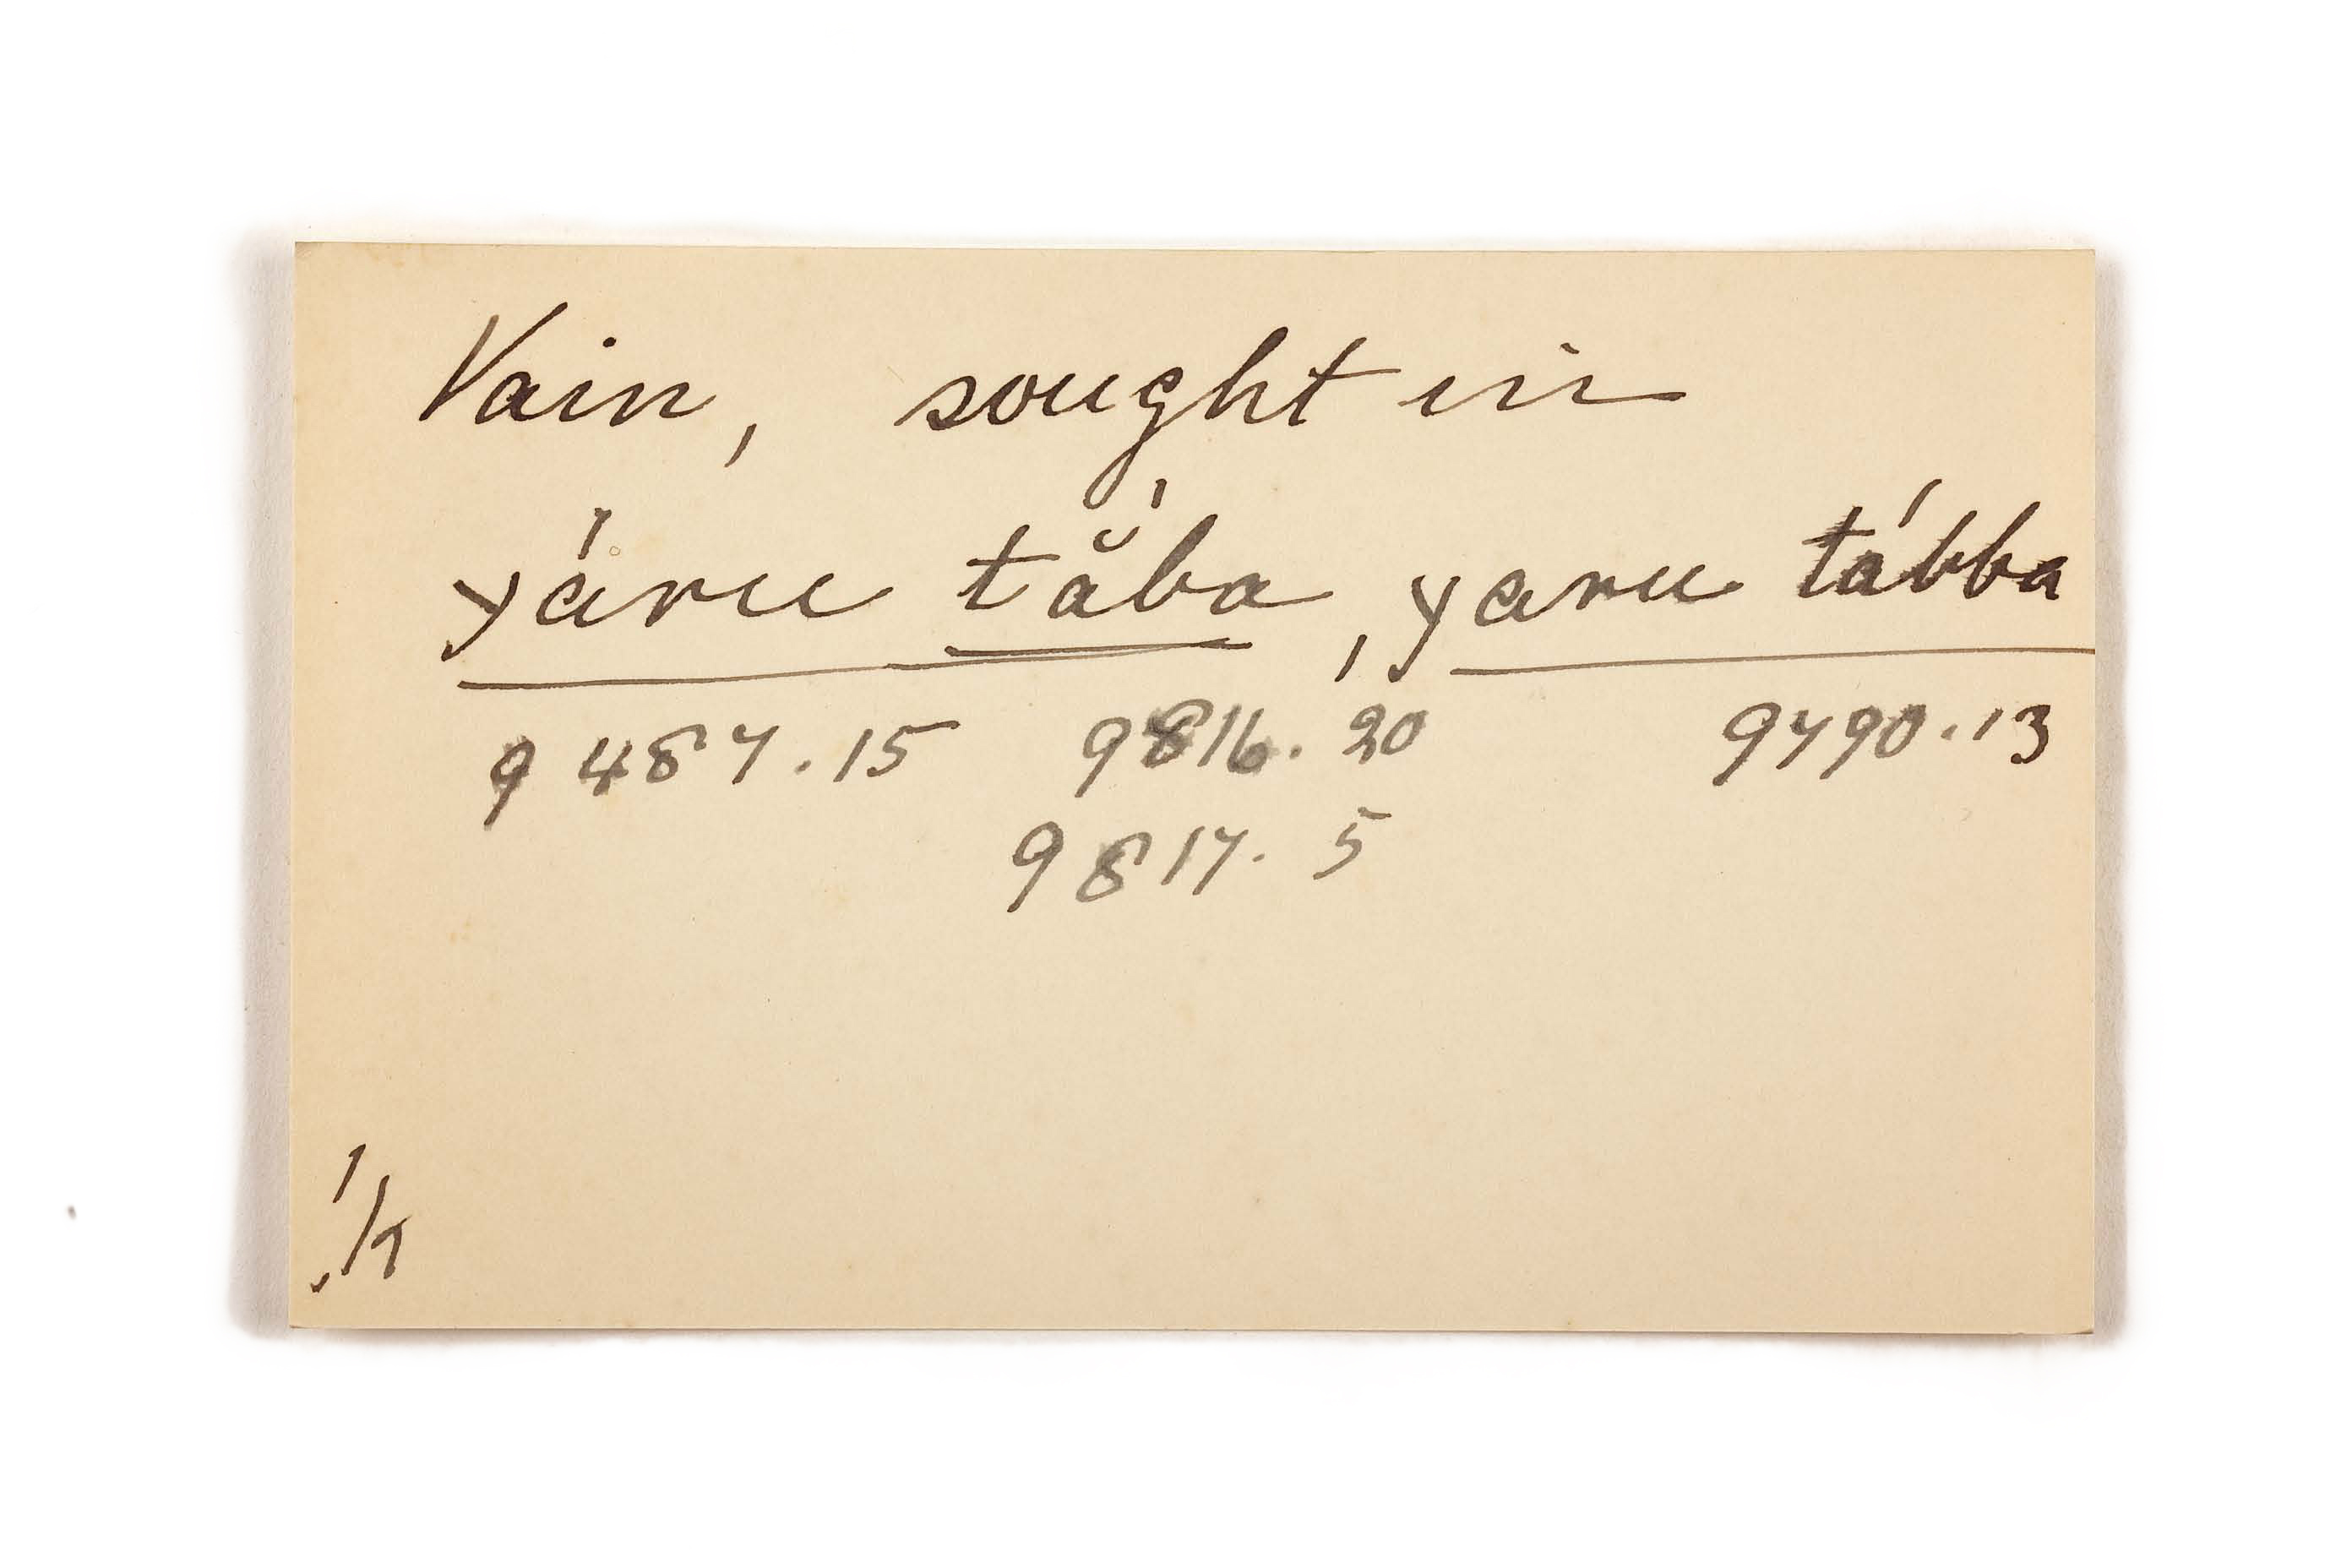 Vain, sought in
yáru tā̆́ba, yaru tábba
9487.15 9816.20 9790.13
9817.5